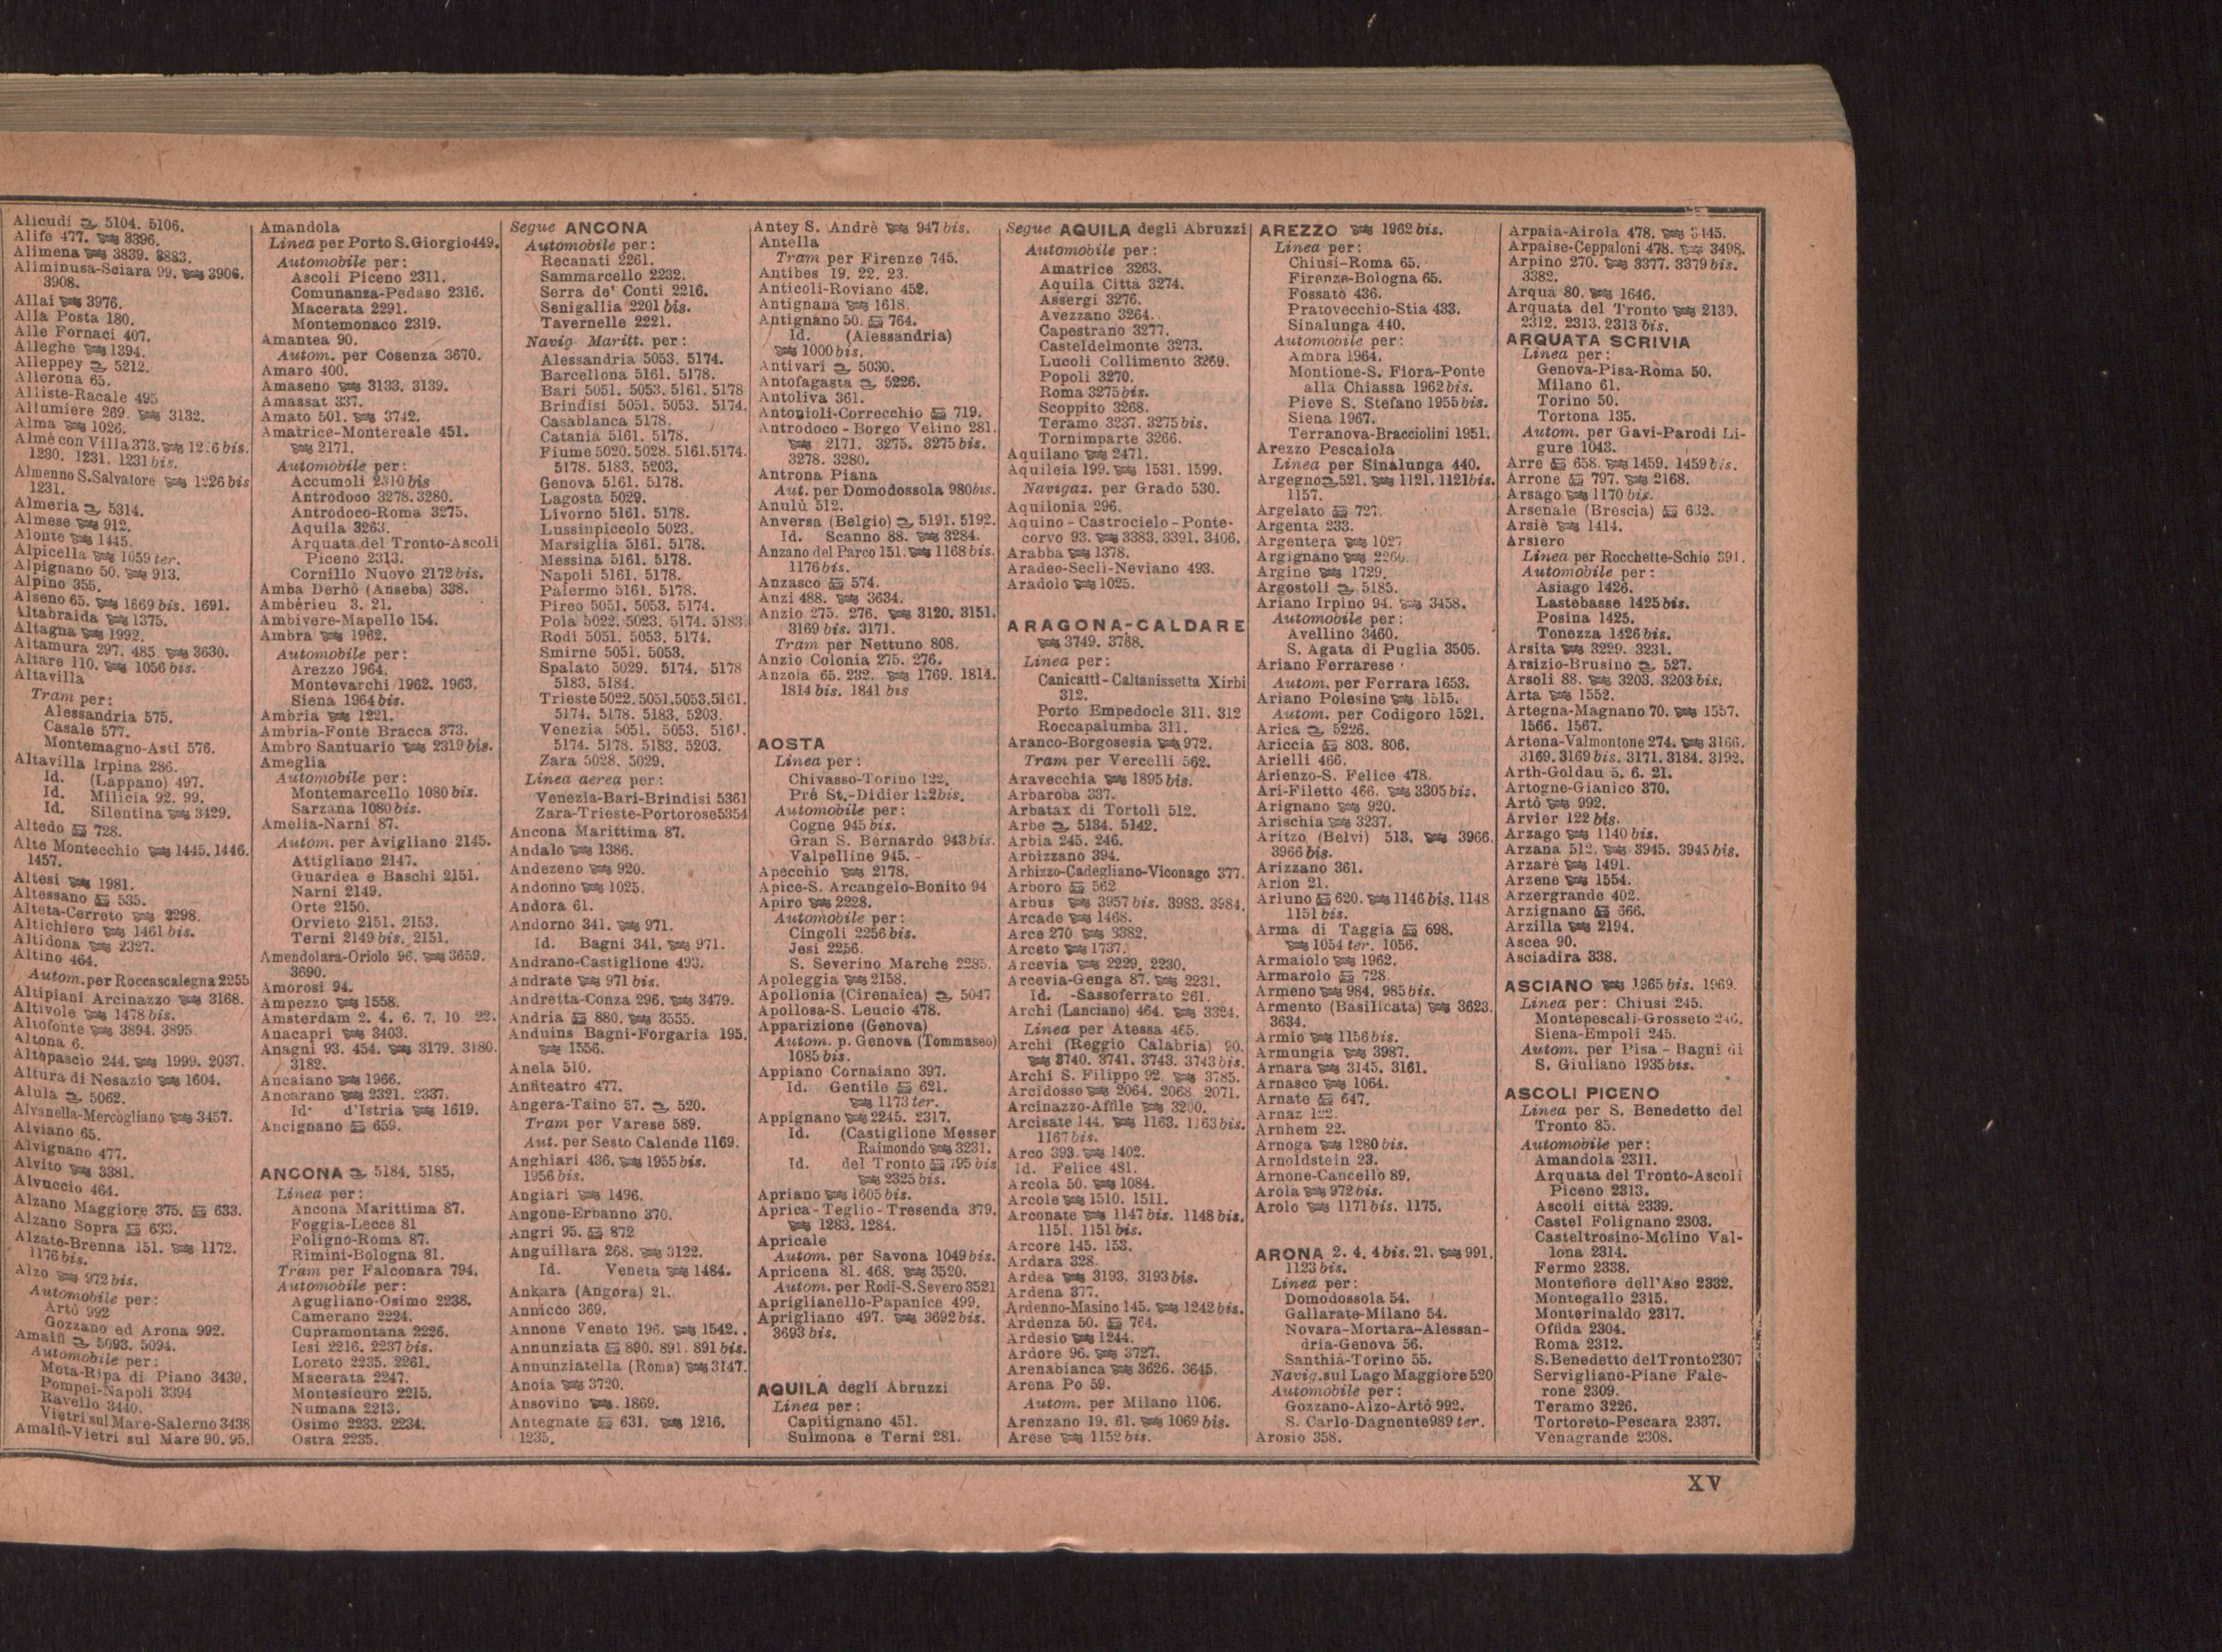 Alicudi 5104. 5106.
Alife 477. 3396.
Alimena 3839. 3883.
Aliminusa-Sciara 99. 3906.
3908.
Allai 3976.
Alla Posta 180.
Alle Fornaci 407.
Alleghe 1394.
Alleppey 5212.
Allerona 65.
Alliste-Racale 495
Allumiere 269. 3132.
Alma 1026.
Almè con Villa 373. bis.
1230. 1231. 1231 bis.
Almenno S. Salvatore 1226 bis
1231.
Almeria 5314.
Almese 912.
Alonte 1445.
Alpicella 1059 ter.
Alpignano 50. 913.
Alpino 355.
Alseno 65. 1669 bis. 1691.
Altabraida 1375.
Altagna 1992.
Altamura 297. 485. 3630.
Altare 110. 1056 bis.
Altavilla
Tram per:
Alessandria 575.
Casale 577.
Montemagno-Asti 576.
Altavilla Irpina 286.
Id. (Lappano) 497.
Id. Milicia 92. 99.
Id. Silentina 3429.
Altedo 728.
Alte Montecchio 1445. 1446.
1457.
Altesi 1981.
Altessano 535.
Alteta-Cerreto 2298.
Altichiero 1461 bis.
Altidona 2327.
Altino 464.
Autom. per Roccascalegna 2255
Altipiani Arcinazzo 3168.
Altivole 1478 bis.
Altofonte 3894. 3895.
Altona 6.
Altopascio 244. 1999. 2037.
Altura di Nesazio 1604.
Alula 5062.
Alvanella-Mercogliano 3457.
Alviano 65.
Alvignano 477.
Alvito 3381.
Alvuccio 464.
Alzano Maggiore 375. 633.
Alzano Sopra 633.
Alzate-Brenna 151. 1172.
1176 bis.
Alzo 972 bis.
Automobile per:
Artò 992
Gozzano ed Arona 992.
Amalfi 5093. 5094.
Automobile per:
Meta-Ripa di Piano 3439.
Pompei-Napoli 3394
Ravello 3440.
Vietri sul Mare-Salerno 3438
Amalfi-Vietri sul Mare 90. 95.
Amandola
Linea per Porto S. Giorgio 449.
Automobile per:
Ascoli Piceno 2311.
Comunanza-Pedaso 2316.
Macerata 2291.
Montemonaco 2319.
Amantea 90.
Autom. per Cosenza 3670.
Amaro 400.
Amaseno 3133. 3139.
Amassat 337.
Amato 501. 3742.
Amatrice-Montereale 451.
2171.
Automobile per:
Accumoli 2310 bis
Antrodoco 3278. 3280.
Antrodoco-Roma 3275.
Aquila 3263.
Arquata del Tronto-Ascoli
Piceno 2313.
Cornillo Nuovo 2172 bis.
Amba Derhò (Anseba) 338.
Ambérieu 3. 21.
Ambivere-Mapello 154.
Ambra 1962.
Automobile per:
Arezzo 1964.
Montevarchi 1962. 1963.
Siena 1964 bis.
Ambria 1221.
Ambria-Fonte Bracca 373.
Ambro Santuario 2319 bis.
Ameglia
Automobile per:
Montemarcello 1080 bis.
Sarzana 1080 bis.
Amelia-Narni 87.
Autom. per Avigliano 2145.
Attigliano 2147.
Guardea e Baschi 2151.
Narni 2149.
Orte 2150.
Orvieto 2151. 2153.
Terni 2149 bis. 2151.
Amendolara-Oriolo 96. 3659.
3690.
Amorosi 94.
Ampezzo 1558.
Amsterdam 2. 4. 6. 7. 10 22.
Anacapri 3403.
Anagni 93. 454. 3179. 3180.
3182.
Ancaiano 1966.
Ancarano 2321. 2337.
Id. d'Istria 1619.
Ancignano 659.
ANCONA 5184. 5185.
Linea per:
Ancona Marittima 87.
Foggia-Lecce 81
Foligno-Roma 87.
Rimini-Bologna 81.
Tram per Falconara 794.
Automobile per:
Agugliano-Osimo 2238.
Camerano 2224.
Cupramontana 2226.
Iesi 2216. 2237 bis.
Loreto 2235. 2261.
Macerata 2247.
Montesicuro 2215.
Numana 2213.
Osimo 2233. 2234.
Ostra 2235.
Segue ANCONA
Automobile per:
Recanati 2261.
Sammarcello 2232.
Serra de' Conti 2216.
Senigallia 2201 bis.
Tavernelle 2221.
Navig Maritt. per:
Alessandria 5053. 5174.
Barcellona 5161. 5178.
Bari 5051. 5053. 5161. 5178
Brindisi 5051. 5053. 5174.
Casablanca 5178.
Catania 5161. 5178.
Fiume 5020. 5028. 5161. 5174.
5178. 5183. 5203.
Genova 5161. 5178.
Lagosta 5029.
Livorno 5161. 5178.
Lussinpiccolo 5023.
Marsiglia 5161. 5178.
Messina 5161. 5178.
Napoli 5161. 5178.
Palermo 5161. 5178.
Pireo 5051. 5053. 5174.
Pola 5022. 5023. 5174. 5183.
Rodi 5051. 5053. 5174.
Smirne 5051. 5053.
Spalato 5029. 5174. 5178
5183. 5184.
Trieste 5022. 5051. 5053. 5161.
5174. 5178. 5183. 5203.
Venezia 5051. 5053. 5161.
5174. 5178. 5183. 5203.
Zara 5028. 5029.
Linea aerea per:
Venezia-Bari-Brindisi 5361
Zara-Trieste-Portorose 5354
Ancona Marittima 87.
Andalo 1386.
Andezeno 920.
Andonno 1025.
Andora 61.
Andorno 341. 971.
Id. Bagni 341. 971.
Andrano-Castiglione 493.
Andrate 971 bis.
Andretta-Conza 296. 3479.
Andria 880. 3555.
Anduins Bagni-Forgaria 195.
1556.
Anela 510.
Anfiteatro 477.
Angera-Taino 57. 520.
Tram per Varese 589.
Aut. per Sesto Calende 1169.
Anghiari 436. 1955 bis.
1956 bis.
Angiari 1496.
Angone-Erbanno 370.
Angri 95. 872
Anguillara 268. 3122.
Id. Veneta 1484.
Ankara (Angora) 21.
Annicco 369.
Annone Veneto 196. 1542.
Annunziata 890. 891. 891 bis.
Annunziatella (Roma) 3147.
Anoia 3720.
Ansovino 1869.
Antegnate 631. 1216.
1235.
Antey S. Andrè 947 bis.
Antella
Tram per Firenze 745.
Antibes 19. 22. 23.
Anticoli-Roviano 452.
Antignana 1618.
Antignano 50. 764.
Id. (Alessandria)
1000 bis.
Antivari 5030.
Antofagasta 5226.
Antoliva 361.
Antonioli-Correcchio 719.
Antrodoco - Borgo Velino 281.
2171. 3275. 3275 bis.
3278. 3280.
Antrona Piana
Aut. per Domodossola 980 bis.
Anulù 512.
Anversa (Belgio) 5191. 5192.
Id. Scanno 88. 3284.
Anzano del Parco 151. 1168 bis.
1176 bis.
Anzasco 574.
Anzi 488. 3634.
Anzio 275. 276. 3120. 3151.
3169 bis. 3171.
Tram per Nettuno 808.
Anzio Colonia 275. 276.
Anzola 65. 232. 1769. 1814.
1814 bis. 1841 bis
AOSTA
Linea per:
Chivasso-Torino 122.
Pré St.-Didier 122 bis.
Automobile per:
Cogne 945 bis.
Gran S. Bernardo 943 bis.
Valpelline 945.
Apecchio 2178.
Apice-S. Arcangelo-Bonito 94
Apiro 2228.
Automobile per:
Cingoli 2256 bis.
Jesi 2256.
S. Severino Marche 2285.
Apoleggia 2158.
Apollonia (Cirenaica) 5047
Apollosa-S. Leucio 478.
Apparizione (Genova)
Autom. p. Genova (Tommaseo)
1085 bis.
Appiano Cornaiano 397.
Id. Gentile 621.
1173 ter.
Appignano 2245. 2317.
Id. (Castiglione Messer
Raimondo 3231.
Id. del Tronto 795 bis
2325 bis.
Apriano 1605 bis.
Aprica-Teglio-Tresenda 379.
1283. 1284.
Apricale
Autom. per Savona 1049 bis.
Apricena 81. 468. 3520.
Autom. per Rodi-S. Severo 3521
Apriglianello-Papanice 499.
Aprigliano 497. 3692 bis.
3693 bis.
AQUILA degli Abruzzi
Linea per:
Capitignano 451.
Sulmona e Terni 281.
Segue AQUILA degli Abruzzi
Automobile per:
Amatrice 3263.
Aquila Città 3274.
Assergi 3276.
Avezzano 3264.
Capestrano 3277.
Casteldelmonte 3273.
Lucoli Collimento 3269.
Popoli 3270.
Roma 3275 bis.
Scoppito 3268.
Teramo 3237. 3275 bis.
Tornimparte 3266.
Aquilano 2471.
Aquileia 199. 1531. 1599.
Navigaz. per Grado 530.
Aquilonia 296.
Aquino - Castrocielo - Ponte-
corvo 93. 3383. 3391. 3406.
Arabba 1378.
Aradeo-Seclì-Neviano 493.
Aradolo 1025.
ARAGONA-CALDARE
3749. 3768.
Linea per:
Canicattì-Caltanissetta Xirbi
312.
Porto Empedocle 311. 312
Roccapalumba 311.
Aranco-Borgosesia 972.
Tram per Vercelli 562.
Aravecchia 1895 bis.
Arbaroba 337.
Arbatax di Tortoli 512.
Arbe 5134. 5142.
Arbia 245. 246.
Arbizzano 394.
Arbizzo-Cadegliano-Viconago 377.
Arboro 562
Arbus 3957 bis. 3983. 3984.
Arcade 1468.
Arce 270 3382.
Arceto 1737.
Arcevia 2229. 2230.
Arcevia-Genga 87. 2231.
Id. -Sassoferrato 261.
Archi (Lanciano) 464. 3324.
Linea per Atessa 465.
Archi (Reggio Calabria) 90.
3740. 3741. 3743. 3743 bis.
Archi S. Filippo 92. 3785.
Arcidosso 2064. 2068 2071.
Arcinazzo-Affile 3200.
Arcisate 144. 1163. 1163 bis.
1167 bis.
Arco 393. 1402.
Id. Felice 481.
Arcola 50. 1084.
Arcole 1510. 1511.
Arconate 1147 bis. 1148 bis.
1151. 1151 bis.
Arcore 145. 153.
Ardara 328.
Ardea 3193. 3193 bis.
Ardena 377.
Ardenno-Masino 145. 1242 bis.
Ardenza 50. 764.
Ardesio 1244.
Ardore 96. 3727.
Arenabianca 3626. 3645.
Arena Po 59.
Autom. per Milano 1106.
Arenzano 19. 61. 1069 bis.
Arese 1152 bis.
AREZZO 1962 bis.
Linea per:
Chiusi-Roma 65.
Firenze-Bologna 65.
Fossato 436.
Pratovecchio-Stia 433.
Sinalunga 440.
Automobile per:
Ambra 1964.
Montione-S. Fiora-Ponte
alla Chiassa 1962 bis.
Pieve S. Stefano 1955 bis.
Siena 1967.
Terranova-Bracciolini 1951.
Arezzo Pescaiola
Linea per Sinalunga 440.
Argegno 521. 1121. 1121 bis.
1157.
Argelato 727.
Argenta 233.
Argentera 1027
Argignano 2260.
Argine 1729.
Argostoli 5185.
Ariano Irpino 94. 3458.
Automobile per:
Avellino 3460.
S. Agata di Puglia 3505.
Ariano Ferrarese
Autom. per Ferrara 1653.
Ariano Polesine 1515.
Autom. per Codigoro 1521.
Arica 5226.
Ariccia 803. 806.
Arielli 466.
Arienzo-S. Felice 478.
Ari-Filetto 466. 3305 bis.
Arignano 920.
Arischia 3237.
Aritzo (Belvi) 513. 3966
3966 bis.
Arizzano 361.
Arlon 21.
Arluno 620. 1146 bis. 1148
1151 bis.
Arma di Taggia 698.
1054 ter. 1056.
Armaiolo 1962.
Armarolo 728.
Armeno 984. 985 bis.
Armento (Basilicata) 3623.
3634.
Armio 1156 bis.
Armungia 3987.
Arnara 3145. 3161.
Arnasco 1064.
Arnate 647.
Arnaz 122.
Arnhem 22.
Arnoga 1280 bis.
Arnoldstein 23.
Arnone-Cancello 89.
Arola 972 bis.
Arolo 1171 bis. 1175.
ARONA 2. 4. 4 bis. 21. 991.
1123 bis.
Linea per:
Domodossola 54.
Gallarate-Milano 54.
Novara-Mortara-Alessan-
dria-Genova 56.
Santhià-Torino 55.
Navig. sul Lago Maggiore 520
Automobile per:
Gozzano-Alzo-Artò 992.
S. Carlo-Dagnente 989 ter.
Arosio 358.
Arpaia-Airola 478. 3445.
Arpaise-Ceppaloni 478. 3498.
Arpino 270. 3377. 3379 bis.
3382.
Arquà 80. 1646.
Arquata del Tronto 2139.
2312. 2313. 2313 bis.
ARQUATA SCRIVIA
Linea per:
Genova-Pisa-Roma 50.
Milano 61.
Torino 50.
Tortona 135.
Autom. per Gavi-Parodi Li-
gure 1043.
Arre 658. 1459. 1459 bis.
Arrone 797. 2168.
Arsago 1170 bis.
Arsenale (Brescia) 632.
Arsiè 1414.
Arsiero
Linea per Rocchette-Schio 391.
Automobile per:
Asiago 1426.
Lastebasse 1425 bis.
Posina 1425.
Tonezza 1426 bis.
Arsita 3229. 3231.
Arsizio-Brusino 527.
Arsoli 88. 3203. 3203 bis.
Arta 1552.
Artegna-Magnano 70. 1557.
1566. 1567.
Artena-Valmontone 274. 3166.
3169. 3169 bis. 3171. 3184. 3192.
Arth-Goldau 5. 6. 21.
Artogne-Gianico 370.
Artò 992.
Arvier 122 bis.
Arzago 1140 bis.
Arzana 512. 3945. 3945 bis.
Arzarè 1491.
Arzene 1554.
Arzergrande 402.
Arzignano 566.
Arzilla 2194.
Ascea 90.
Asciadira 338.
ASCIANO 1965 bis. 1969.
Linea per: Chiusi 245.
Montepescali-Grosseto 246.
Siena-Empoli 245.
Autom. per Pisa - Bagni di
S. Giuliano 1935 bis.
ASCOLI PICENO
Linea per S. Benedetto del
Tronto 85.
Automobile per:
Amandola 2311.
Arquata del Tronto-Ascoli
Piceno 2313.
Ascoli città 2339.
Castel Folignano 2303.
Casteltrosino-Molino Val-
lona 2314.
Fermo 2338.
Montefiore dell'Aso 2332.
Montegallo 2315.
Monterinaldo 2317.
Offida 2304.
Roma 2312.
S. Benedetto del Tronto 2307
Servigliano-Piane Fale-
rone 2309.
Teramo 3226.
Tortoreto-Pescara 2337.
Venagrande 2308.
XV